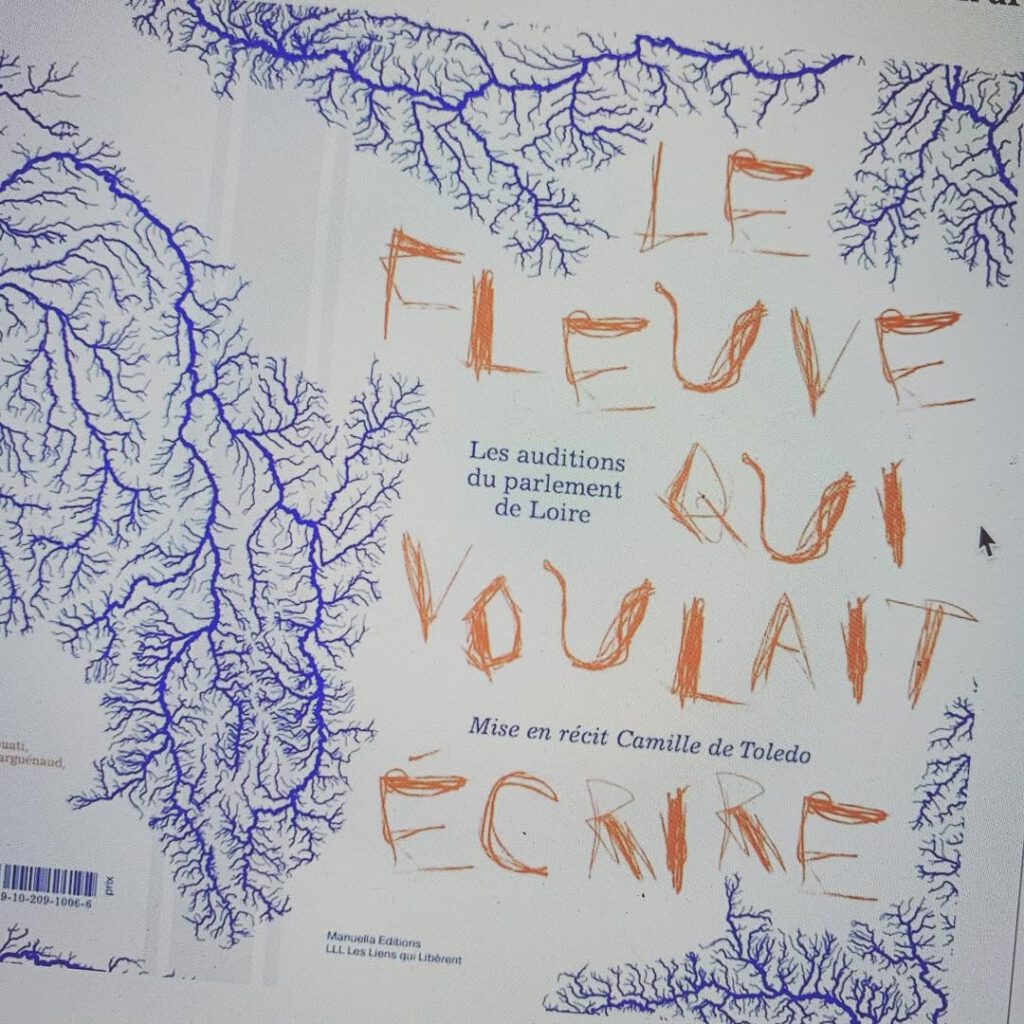 LE
FLEUVE
Les auditions
du parlement
de Loire
QUI
VOULAIT
Mise en récit Camille de Toledo
ÉCRIRE
Manuella Editions
LLL Les Liens qui Libèrent
prix
9-10-209-1006-6